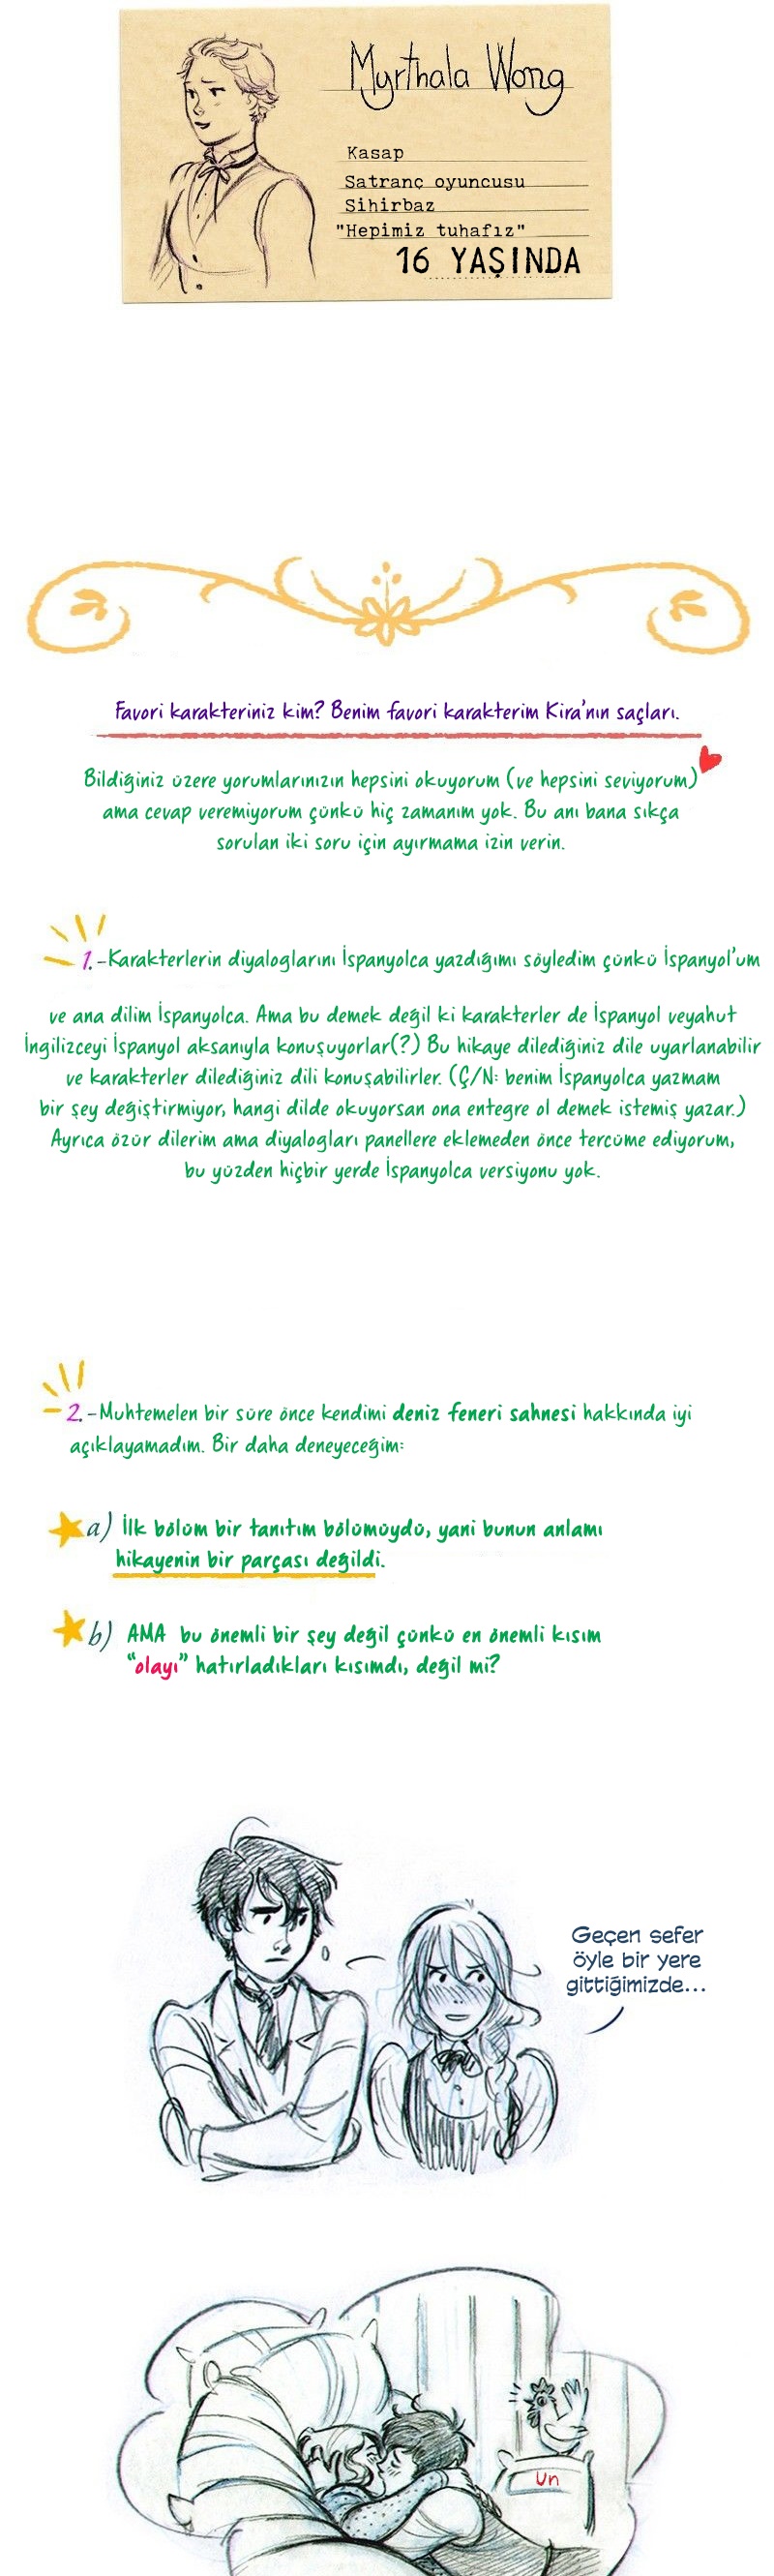 Myrthala Wong
Kasap
Satranç oyuncusu
Sihirbaz
"Hepimiz tuhafız"
16 YAŞINDA
Favori karakteriniz kim? Benim favori karakterim Kira'nın saçları.
Bildiğiniz üzere yorumlarınızın hepsini okuyorum (ve hepsini seviyorum)
ama cevap veremiyorum çünkü hiç zamanım yok. Bu anı bana sıkça
sorulan iki soru için ayırmama izin verin.
1.-Karakterlerin diyaloglarını İspanyolca yazdığımı söyledim çünkü İspanyol'um
ve ana dilim İspanyolca. Ama bu demek değil ki karakterler de İspanyol veyahut
İngilizceyi İspanyol aksanıyla konuşuyorlar(?) Bu hikaye dilediğiniz dile uyarlanabilir
ve karakterler dilediğiniz dili konuşabilirler. (Ç/N: benim İspanyolca yazmam
bir şey değiştirmiyor, hangi dilde okuyorsan ona entegre ol demek istemiş yazar.)
Ayrıca özür dilerim ama diyalogları panellere eklemeden önce tercüme ediyorum,
bu yüzden hiçbir yerde İspanyolca versiyonu yok.
2.-Muhtemelen bir süre önce kendimi deniz feneri sahnesi hakkında iyi
açıklayamadım. Bir daha deneyeceğim:
a) İlk bölüm bir tanıtım bölümüydü, yani bunun anlamı
hikayenin bir parçası değildi.
b) AMA bu önemli bir şey değil çünkü en önemli kısım
"olayı" hatırladıkları kısımdı, değil mi?
Geçen sefer
öyle bir yere
gittiğimizde...
un